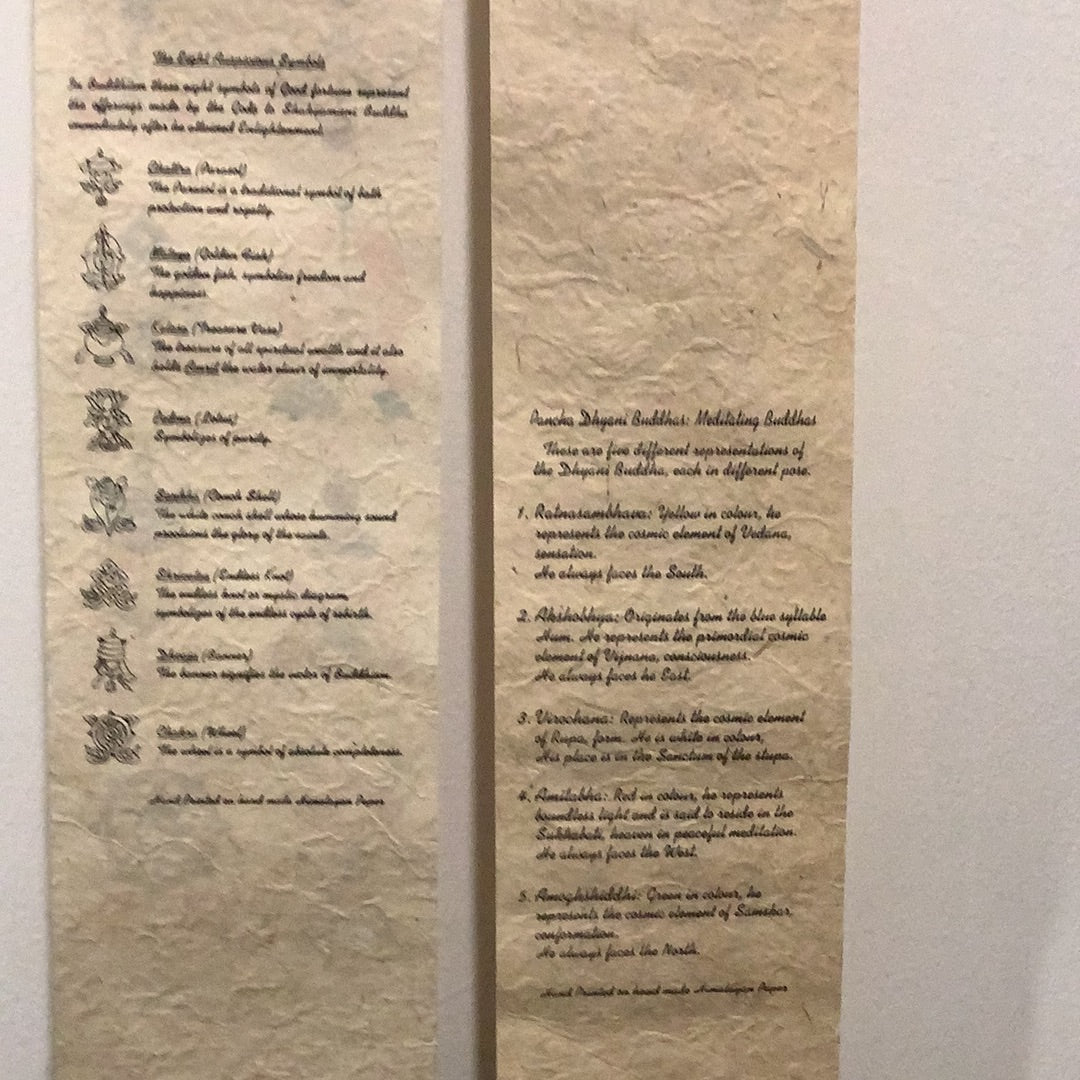 The Eight Auspicious Symbols
In Buddhism these eight symbols of Good fortune represent
the offerings made by the Gods to Shakyamuni Buddha
immediately after he attained Enlightenment.
Chattra (Parasol)
The Parasol is a traditional symbol of both
protection and royalty.
(Golden Fish)
The golden fish, symbolise freedom and
happiness.
(Treasure Vase)
The treasure of all spiritual wealth and it also
holds Amrit the water elixer of immortality.
Padma (Lotus)
Symbolizes of purity.
(Conch Shell)
The white conch shell whose humming sound
the glory of the saints.
(Endless Knot)
The endless knot or mystic diagram
symbolizes of the endless cycle of rebirth.
(Banner)
The banner signifies the of Buddhism.
Chakra (Wheel)
The wheel is a symbol of absolute completeness.
Hand Printed on hand made Himalayan Paper
Pancha Dhyani Buddhas: Meditating Buddhas
These are five different representations of
the Dhyani Buddha, each in different pose.
1. Ratnasambhava: Yellow in colour, he
represents the cosmic element of Vedana,
sensation.
He always faces the South.
2. Akshobhya: Originates from the blue syllable
Hum. He represents the primordial cosmic
element of Vijnana, consciousness.
He always faces he East.
3. Virochana: Represents the cosmic element
of Rupa, form. He is white in colour,
His place is in the Sanctum of the stupa.
4. Amitabha: Red in colour, he represents
boundless light and is said to reside in the
Sukhabati, heaven in peaceful meditation.
He always faces the West.
5. Amoghshiddhi: Green in colour, he
represents the cosmic element of Samskar,
conformation.
He always faces the North.
Hand Printed on hand made Himalayan Paper